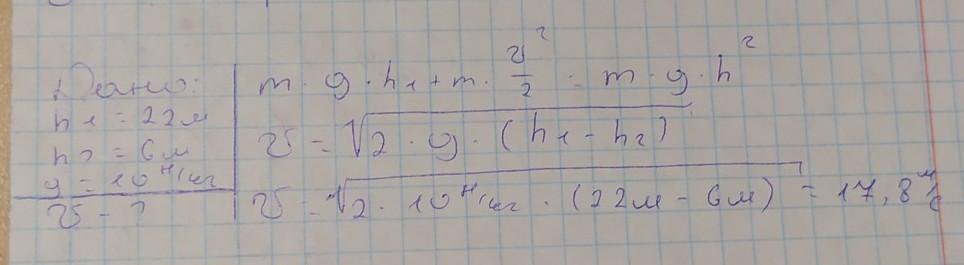 Дано:
h1 = 22м
h2 = 6м
g = 10 Н/кг
v - ?
m · g · h1 + m · v²/2 = m · g · h²
v = √2 · g · (h1 - h2)
v = √2 · 10 Н/кг · (22м - 6м) = 17,8 м/с